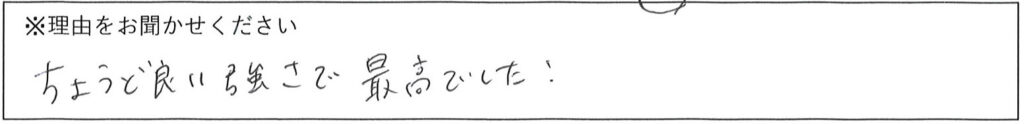 ※理由をお聞かせください
ちょうど良い強さで 最高でした!